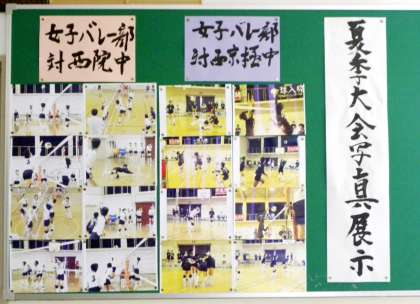 女子バレー部
対西院中
女子バレー部
対西京極中
夏季大会写真展示